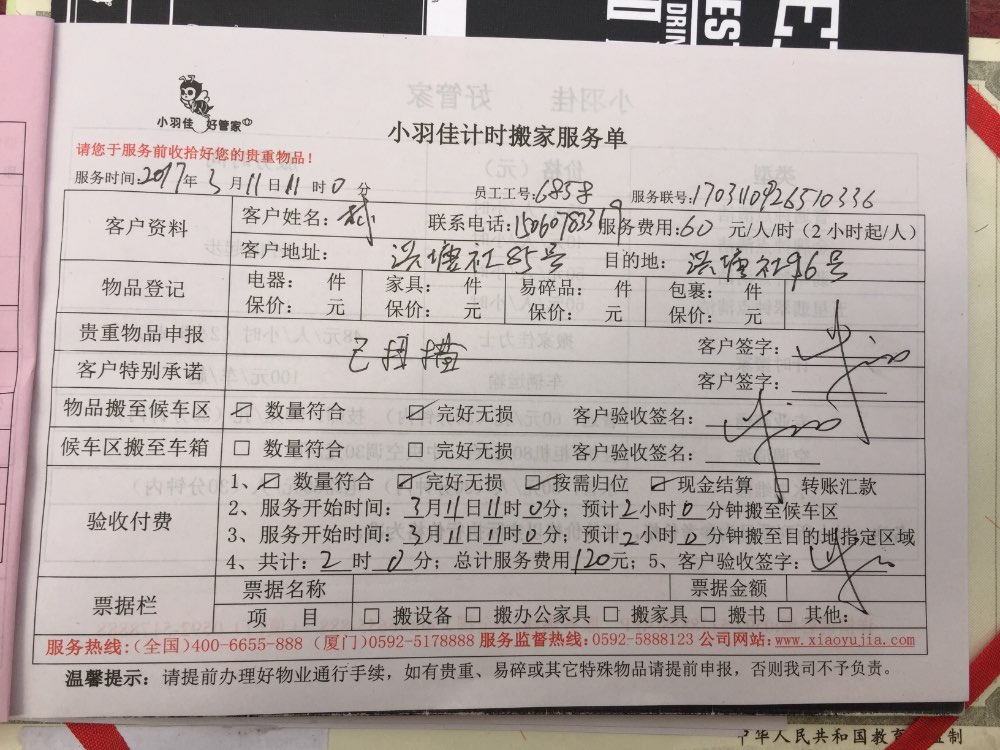 EST
DRIN
小羽佳 好管家
小羽佳计时搬家服务单
请您于服务前收拾好您的贵重物品！
服务时间:2017年3月11日11时0分 员工工号: 服务联号:
客户资料 客户姓名: 联系电话: 服务费用:60 元/人/时(2小时起/人)
客户地址: 洪塘社85号 目的地: 洪塘社96号
物品登记 电器: 件 家具: 件 易碎品: 件 包裹: 件
保价: 元 保价: 元 保价: 元 保价: 元
贵重物品申报 客户签字:
客户特别承诺 客户签字:
物品搬至候车区 ☑ 数量符合 ☑ 完好无损 客户验收签名:
候车区搬至车箱 □ 数量符合 □ 完好无损 客户验收签名:
验收付费 1、☑ 数量符合 ☑ 完好无损 ☑ 按需归位 ☑ 现金结算 □ 转账汇款
2、服务开始时间: 3月11日11时0分; 预计2小时0分钟搬至候车区
3、服务开始时间: 3月11日11时0分; 预计2小时0分钟搬至目的地指定区域
4、共计: 2时0分; 总计服务费用120元; 5、客户验收签字:
票据栏 票据名称 票据金额
项 目 □ 搬设备 □ 搬办公家具 □ 搬家具 □ 搬书 □ 其他:
服务热线:(全国)400-6655-888 (厦门)0592-5178888 服务监督热线:0592-5888123 公司网站:www.xiaoyujia.com
温馨提示: 请提前办理好物业通行手续，如有贵重、易碎或其它特殊物品请提前申报，否则我司不予负责。
中华人民共和国教育 监制